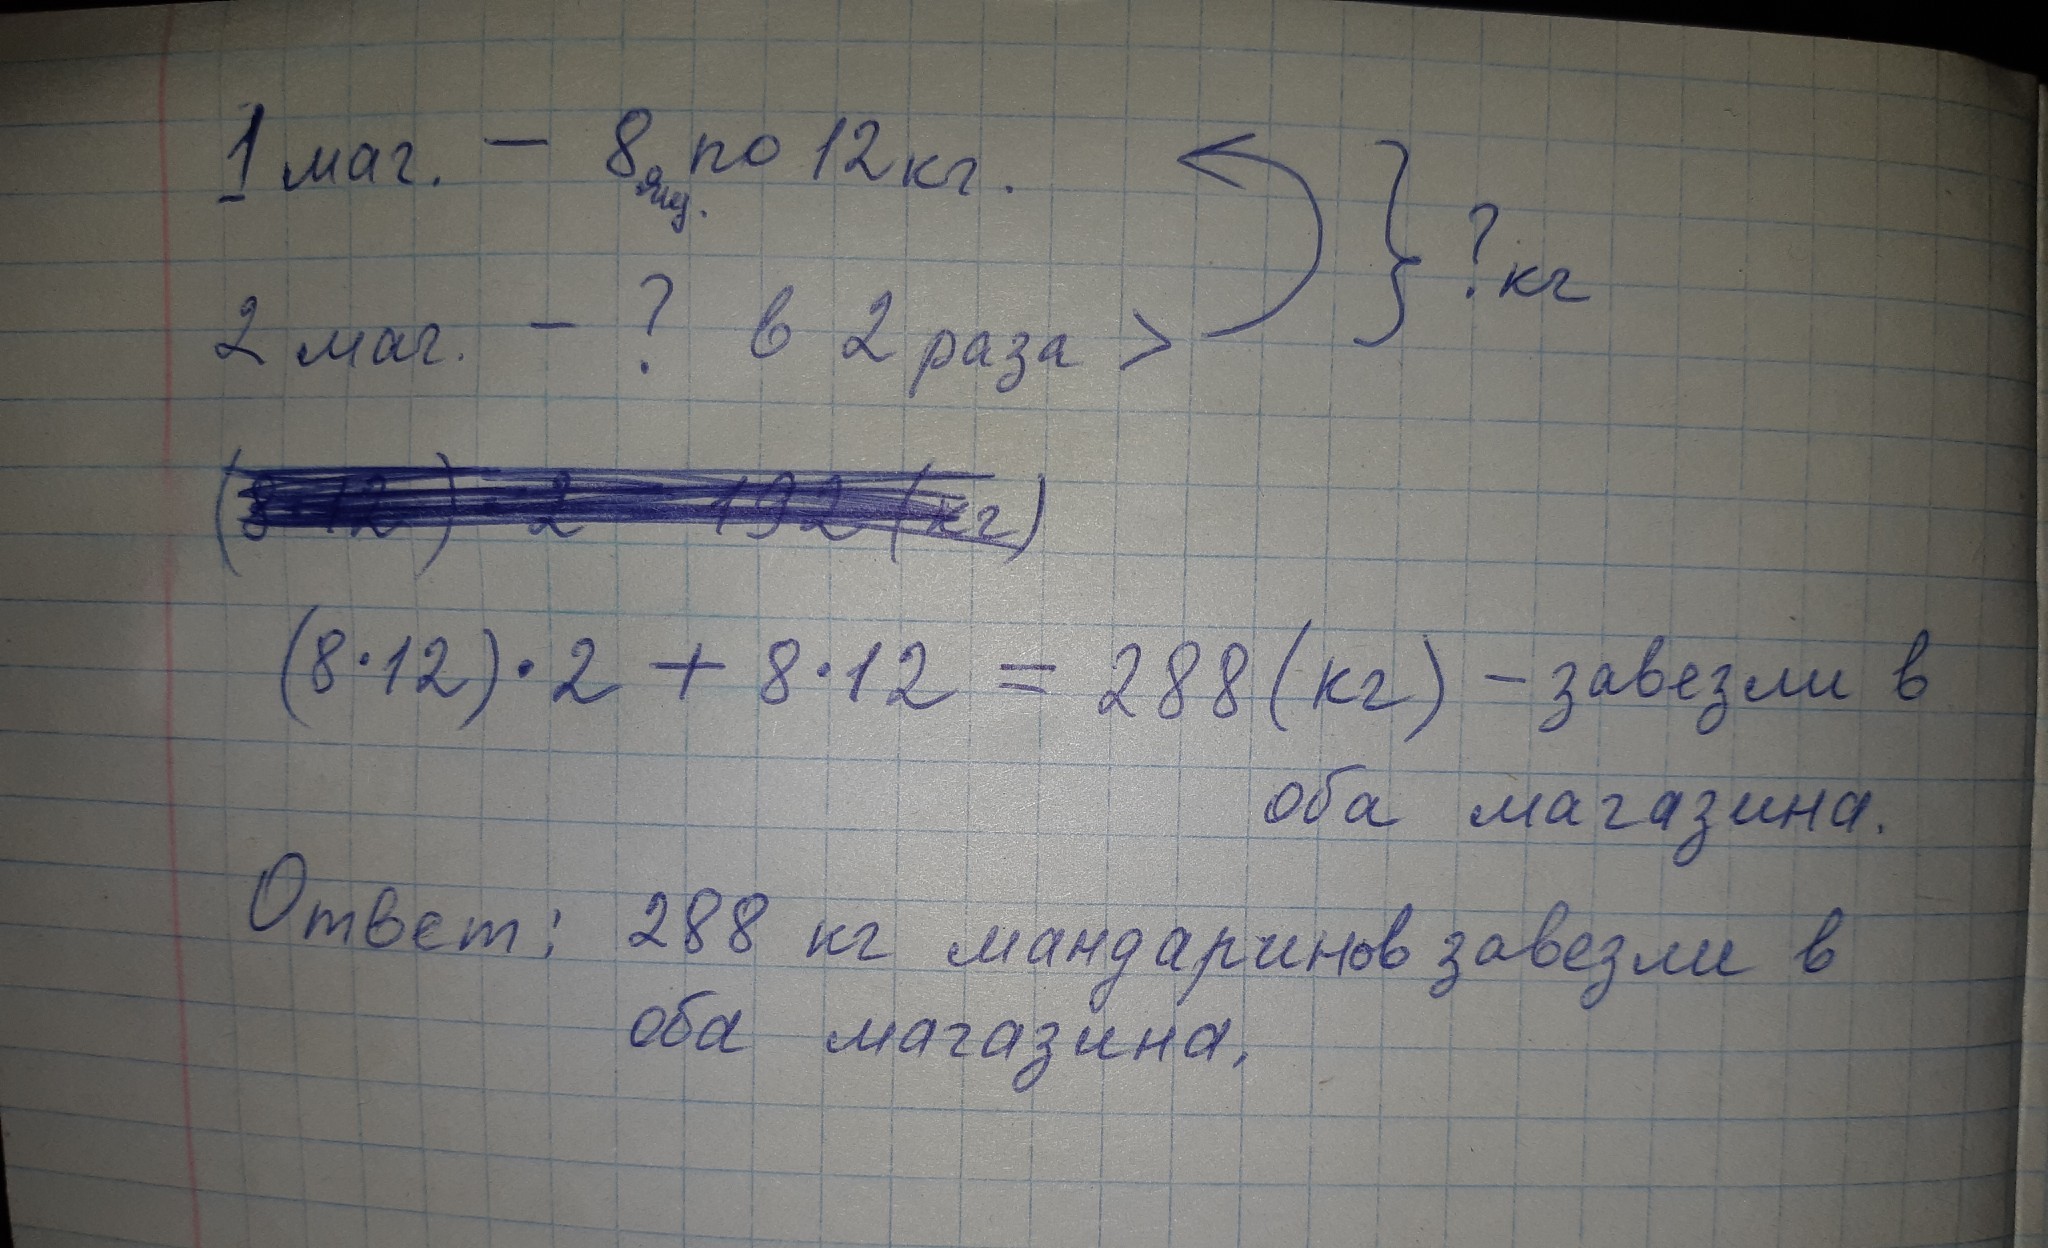 1 маг. — 8 ящ. по 12 кг.
2 маг. — ? в 2 раза >
} ? кг
(8·12)·2 = 192 (кг)
(8·12)·2 + 8·12 = 288 (кг) – завезли в
оба магазина.
Ответ: 288 кг мандаринов завезли в
оба магазина.